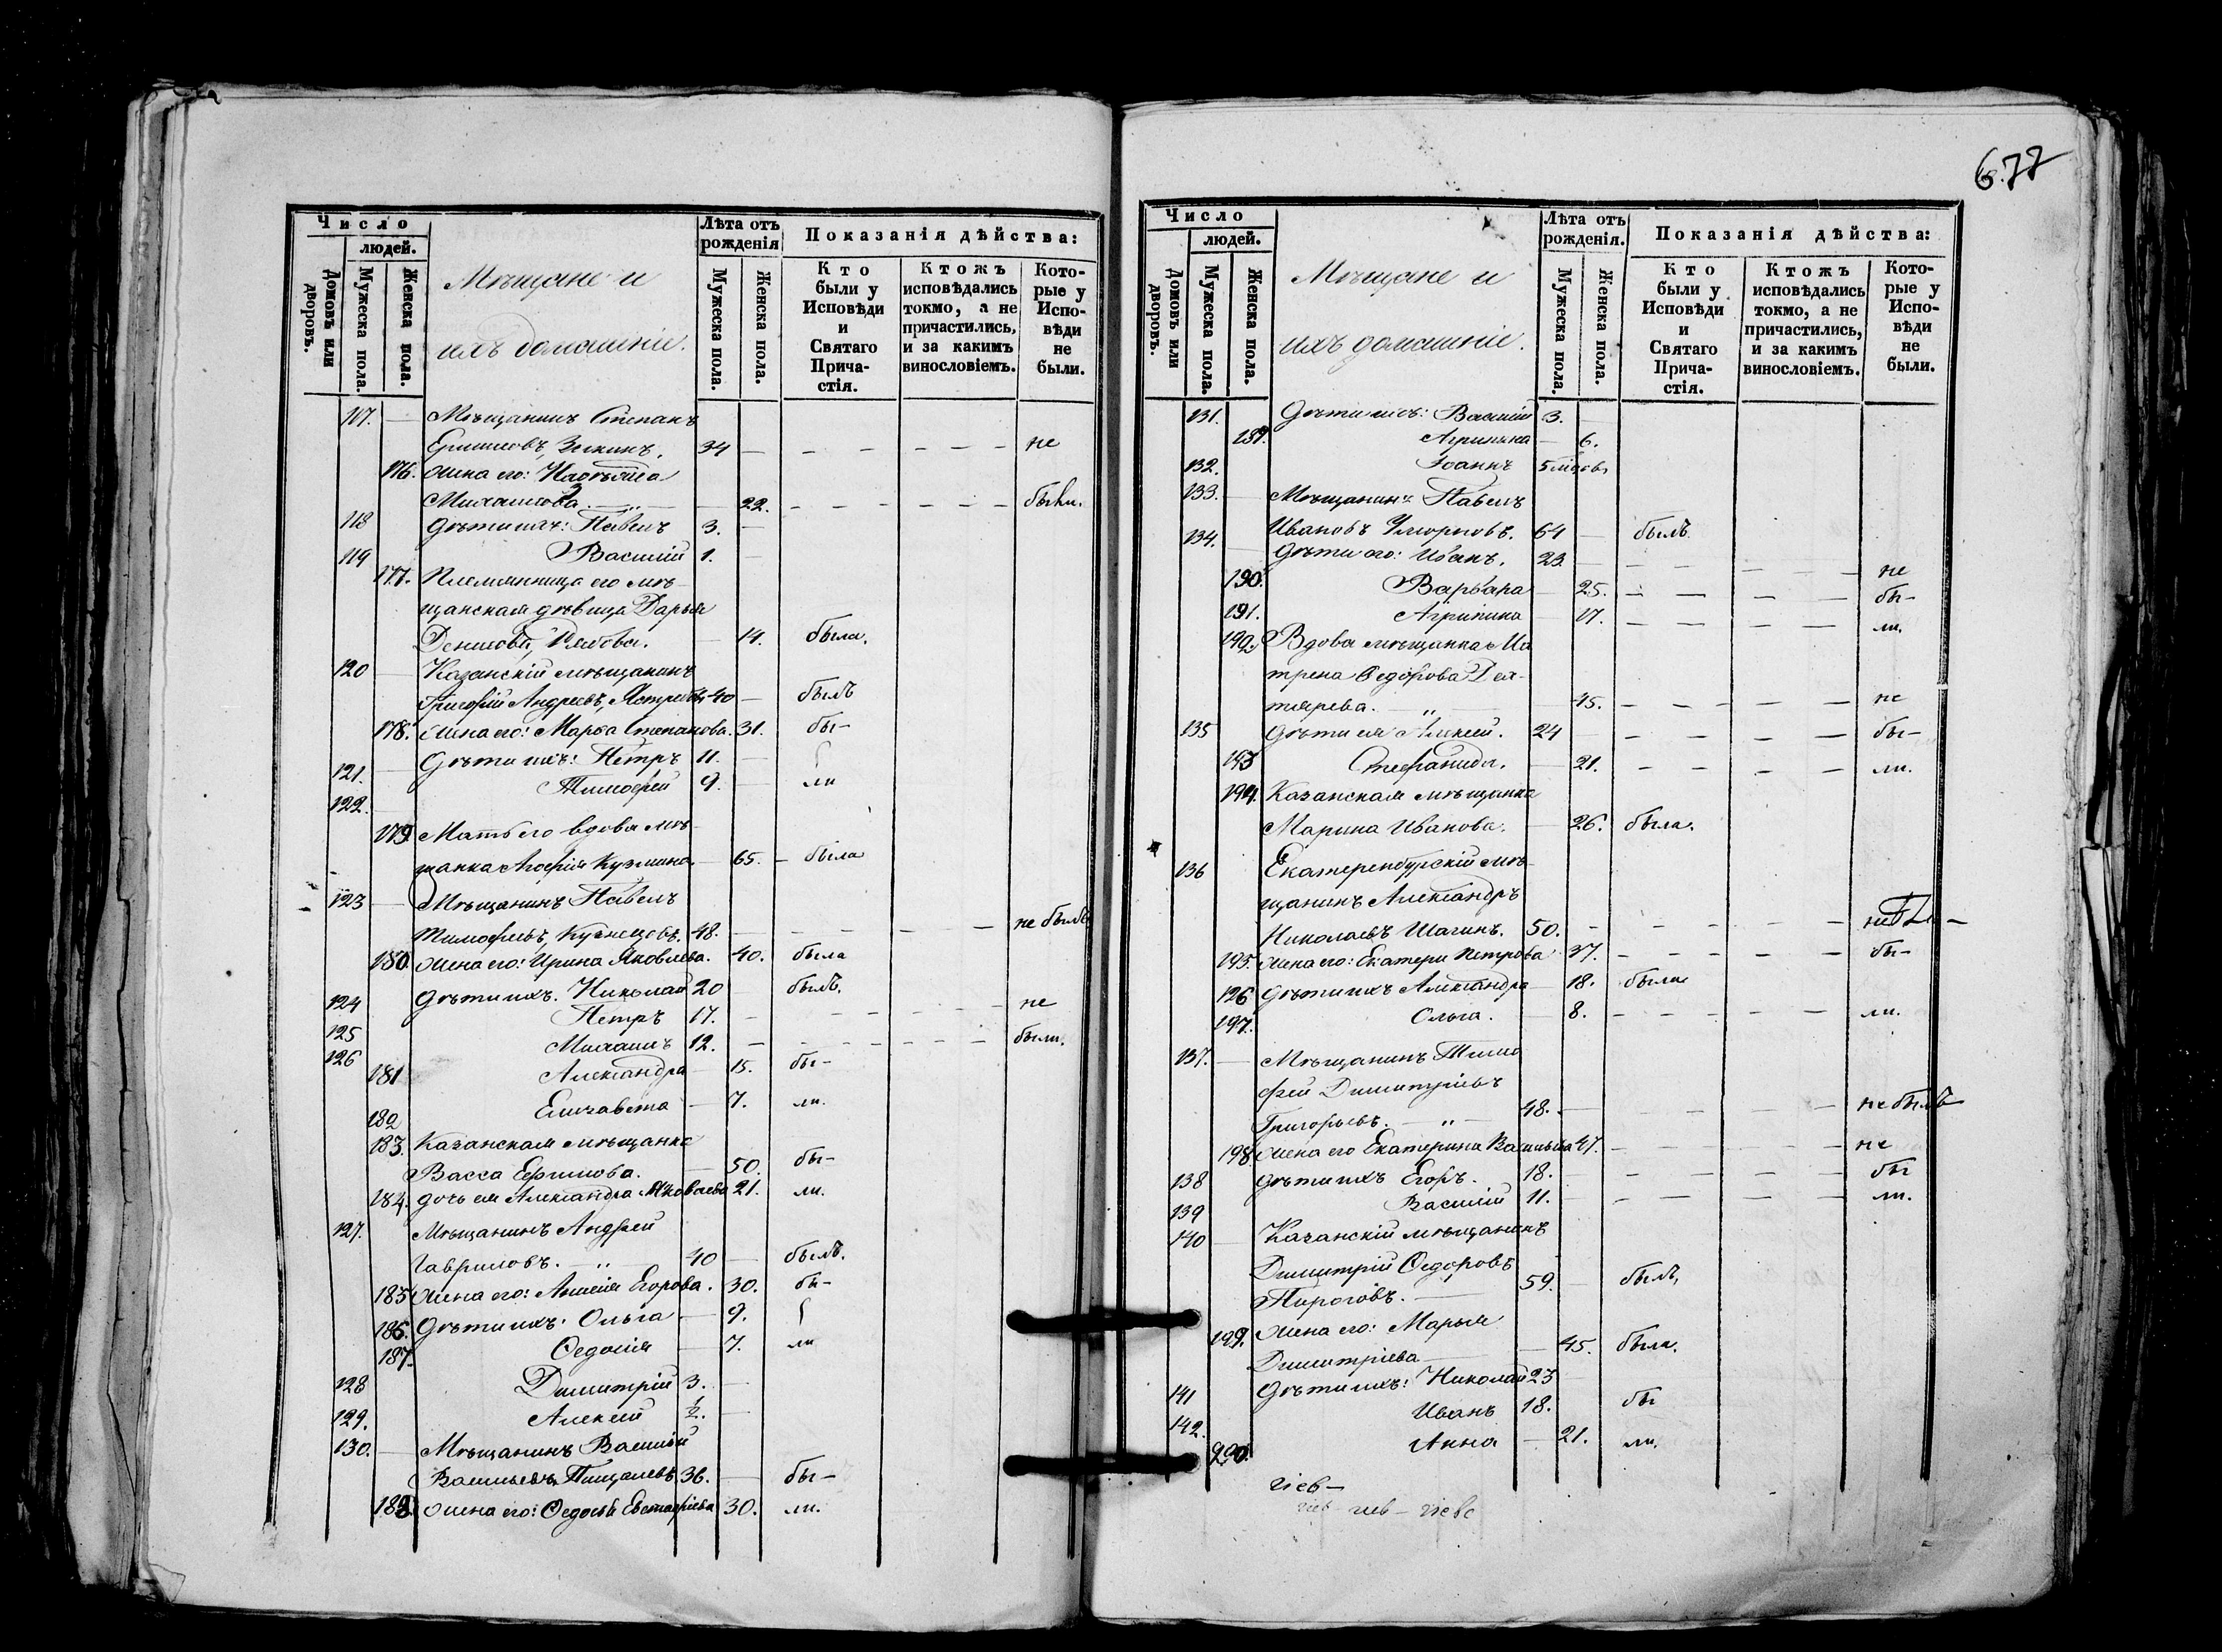 6.77
Число
людей.
Домовъ или дворовъ.
Мужеска пола.
Женска пола.
Мѣщане и
ихъ домашніе.
Лѣта отъ рожденія
Мужеска пола.
Женска пола.
Показанія дѣйства:
Кто были у Исповѣди и Святаго Прича-стія.
Ктожъ исповѣдались токмо, а не причастились, и за какимъ винословіемъ.
Кото-рые у Испо-вѣди не были.
117. — Мѣщанинъ Степанъ
34 — не
176. Жена его:
22. — были.
118 Дѣти ихъ: Павелъ 3. —
119 Василій 1. —
177. Племянница его мѣ-
щанская дѣвица Дарья
— 14. была.
120 — Казанскій мѣщанинъ
Григорій Андреевъ, 40 — былъ
178. Жена его: Марѳа Степанова. 31. бы-
121. — Дѣти ихъ: Петръ 11. —
122. — Тимофей 9. — ли
179 Мать его вдова мѣ-
щанка Кузмина. — 65. — была
123 — Мѣщанинъ Павелъ
Тимофеевъ, Кузнецовъ. 48. — не былъ
180. Жена его: Ирина Яковлева. 40. была
124 Дѣти ихъ. Николай 20 былъ.
125 Петръ 17. — не
126 Михаилъ 12. — были.
181 Александра — 15. бы-
182 Елизавета — 7. ли.
183. Казанская мѣщанка
Васса Ефимова. — 50. бы-
184. дочь ея Александра Яковлева 21. ли.
127. Мѣщанинъ Андрей
Гавриловъ. — „ 40 — былъ.
185 Жена его: Егорова. 30. бы-
186. Дѣти ихъ: Ольга — 9.
187. — 7. ли
128 Димитрій 3. —
129. Алексѣй ½. —
130. — Мѣщанинъ Василій
Васильевъ, 36. — бы-
188. Жена его: Ѳедосья Евстафіева 30. ли.
Число
людей.
Домовъ или дворовъ.
Мужеска пола.
Женска пола.
Мѣщане и
ихъ домашніе.
Лѣта отъ рожденія.
Мужеска пола.
Женска пола.
Показанія дѣйства:
Кто были у Исповѣди и Святаго Прича-стія.
Ктожъ исповѣдались токмо, а не причастились, и за какимъ винословіемъ.
Кото-рые у Испо-вѣди не были.
131. Дѣти ихъ: Василій 3. —
189. Агрипина — 6.
132. Іоаннъ
133. — Мѣщанинъ Павелъ
Ивановъ 64 — былъ.
134. — Дѣти его: Иванъ. 23. — не
190. Варвара — 25. — бы-
191. Агрипина — 17. — ли.
192. Вдова мѣщанка Ма
трена Ѳедорова Дех-
тярева. — „ 45. — не
135 Дѣти ея Алексѣй. 24 — бы-
193 Стефанида. — 21. — ли.
194. Казанская мѣщанка
Марина Иванова. — 26. была.
136 Екатеренбурскій мѣ-
щанинъ Александръ
Николаевъ Шагинъ. 50. —
195. Жена его: Екатери Петрова 37. — бы-
196 Дѣти ихъ Александра — 18. была
197. Ольга. — 8. — ли.
137. — Мѣщанинъ Тимо
фей Димитріевъ
Григорьевъ. — „ 48. — не былъ
198 Жена его Екатерина Васильева 47. — не
138 Дѣти ихъ Егоръ. 18. — бы
139 Василій 11. — ли.
140 — Казанскій мѣщанинъ
Димитрій Ѳедоровъ
Пироговъ. — 59. — былъ,
199. Жена его: Марья
Димитріева — 45. была.
141 Дѣти ихъ: Николай 23
142. Иванъ 18. бы
200. Анна — 21. ли.